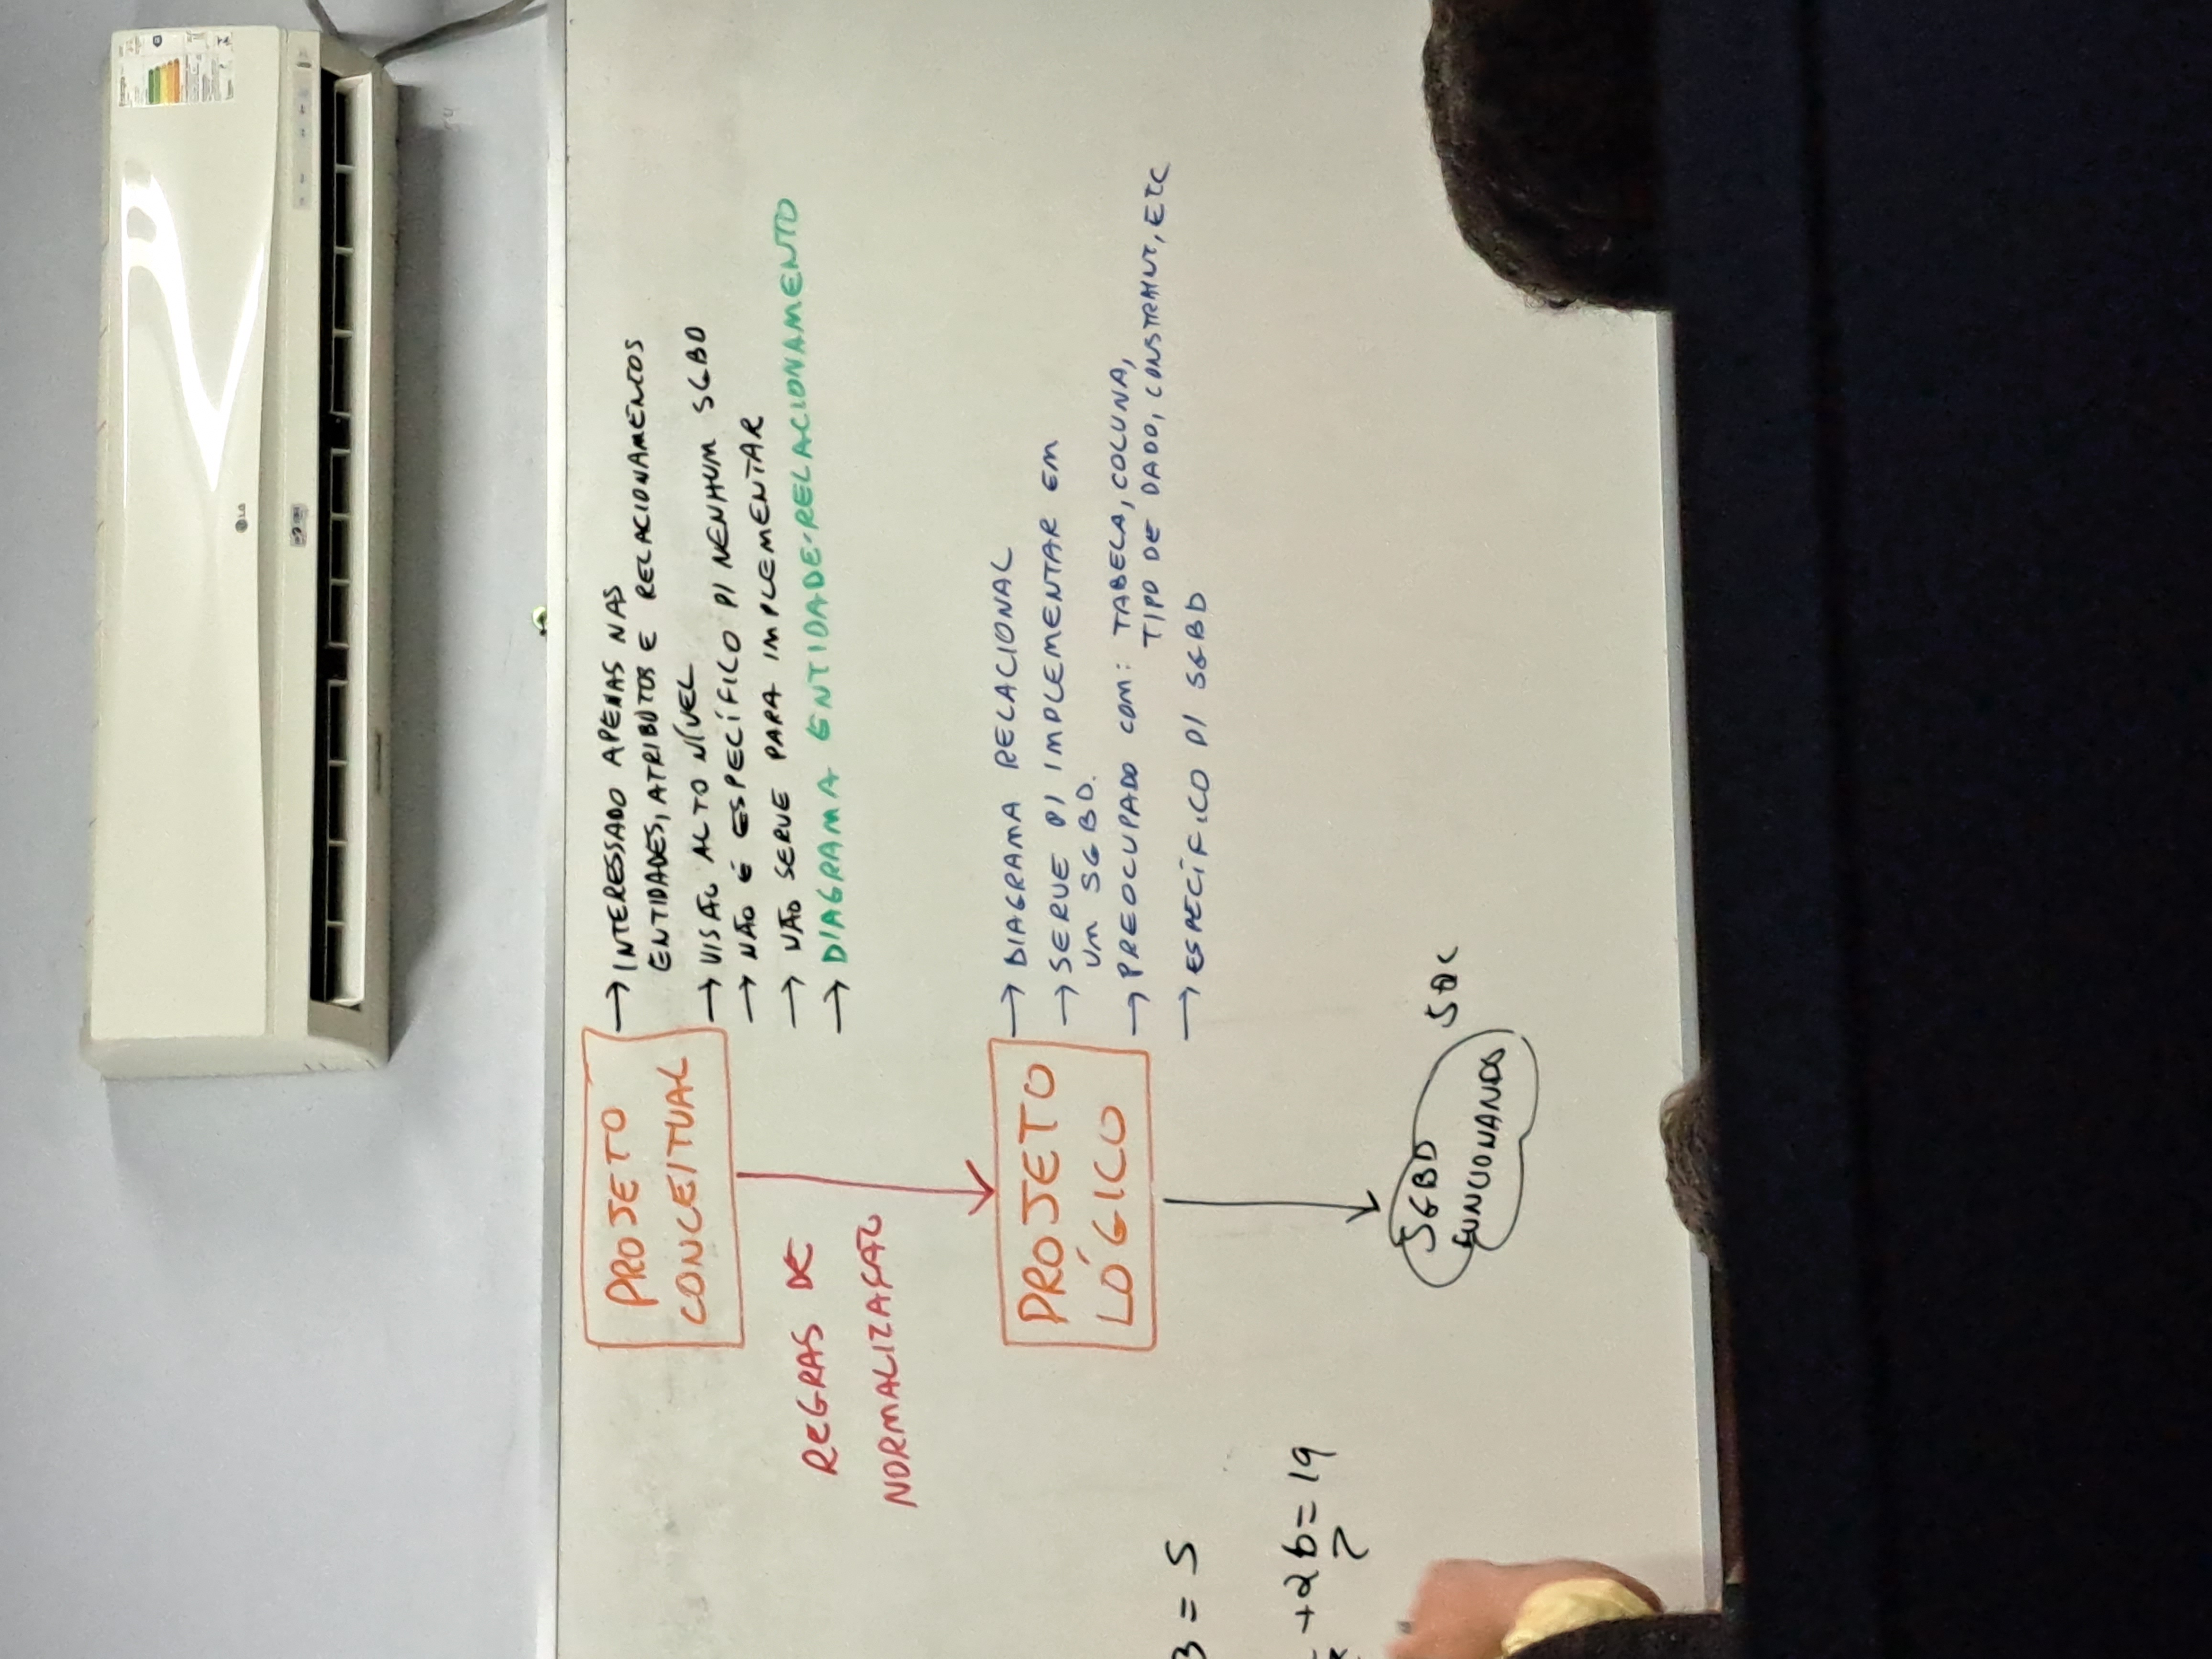 LG
PROJETO
CONCEITUAL
→ INTERESSADO APENAS NAS
ENTIDADES, ATRIBUTOS E RELACIONAMENTOS
→ VISÃO ALTO NÍVEL
→ NÃO É ESPECÍFICO P/ NENHUM SGBD
→ NÃO SERVE PARA IMPLEMENTAR
→ DIAGRAMA ENTIDADE-RELACIONAMENTO
REGRAS DE
NORMALIZAÇÃO
PROJETO
LÓGICO
→ DIAGRAMA RELACIONAL
→ SERVE P/ IMPLEMENTAR EM
UM SGBD.
→ PREOCUPADO COM: TABELA, COLUNA,
TIPO DE DADO, CONSTRAINT, ETC
→ ESPECÍFICO P/ SGBD
3 = 5
+2b = 19
SGBD
FUNCIONANDO
SQL